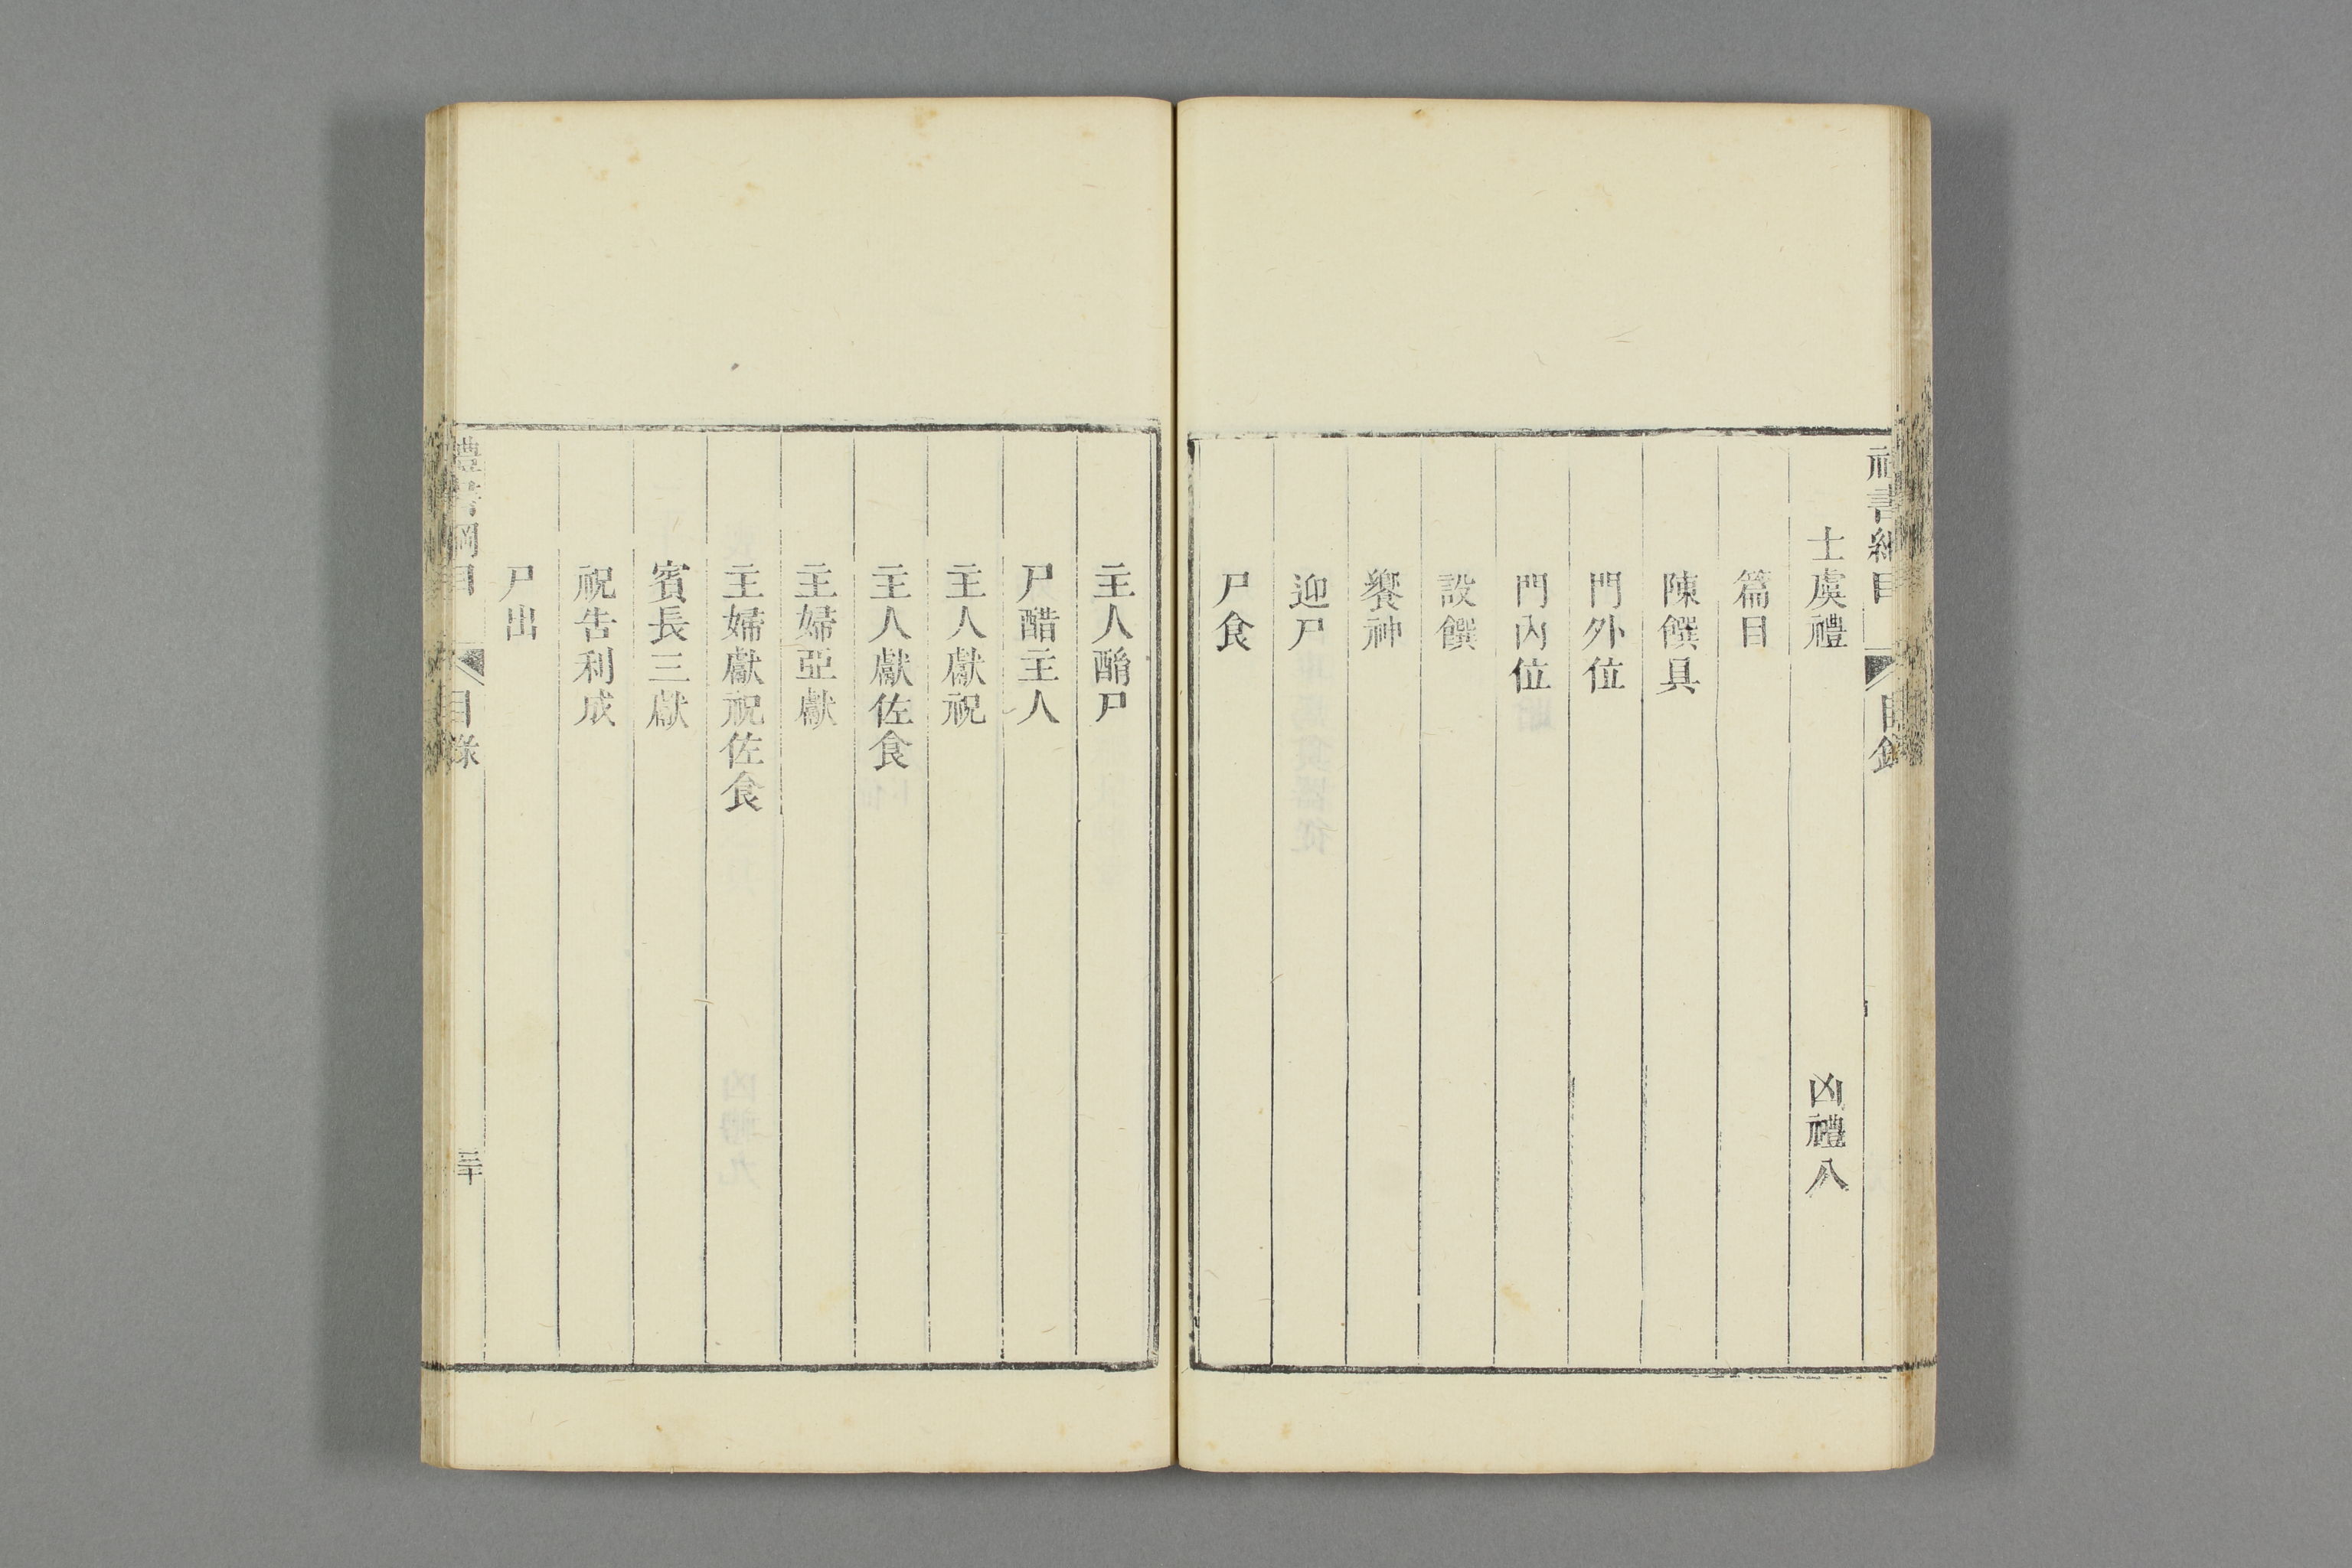 禮書綱目 目錄
士虞禮 凶禮八
篇目
陳饌具
門外位
門內位
設饌
饗神
迎尸
尸食
主人酳尸
尸醋主人
主人獻祝
主人獻佐食
主婦亞獻
主婦獻祝佐食
賓長三獻
祝告利成
尸出
禮書綱目 目錄